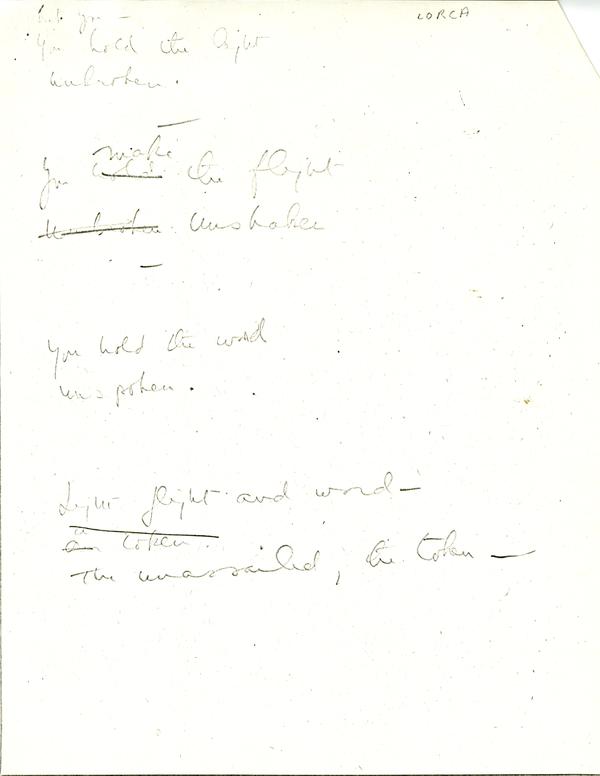 LORCA
you —
You hold the light
unbroken.
—
make
You hold the flight
unbroken unshaken
—
You hold the word
unspoken.
Light flight and word —
in token.
The unassailed, the token —